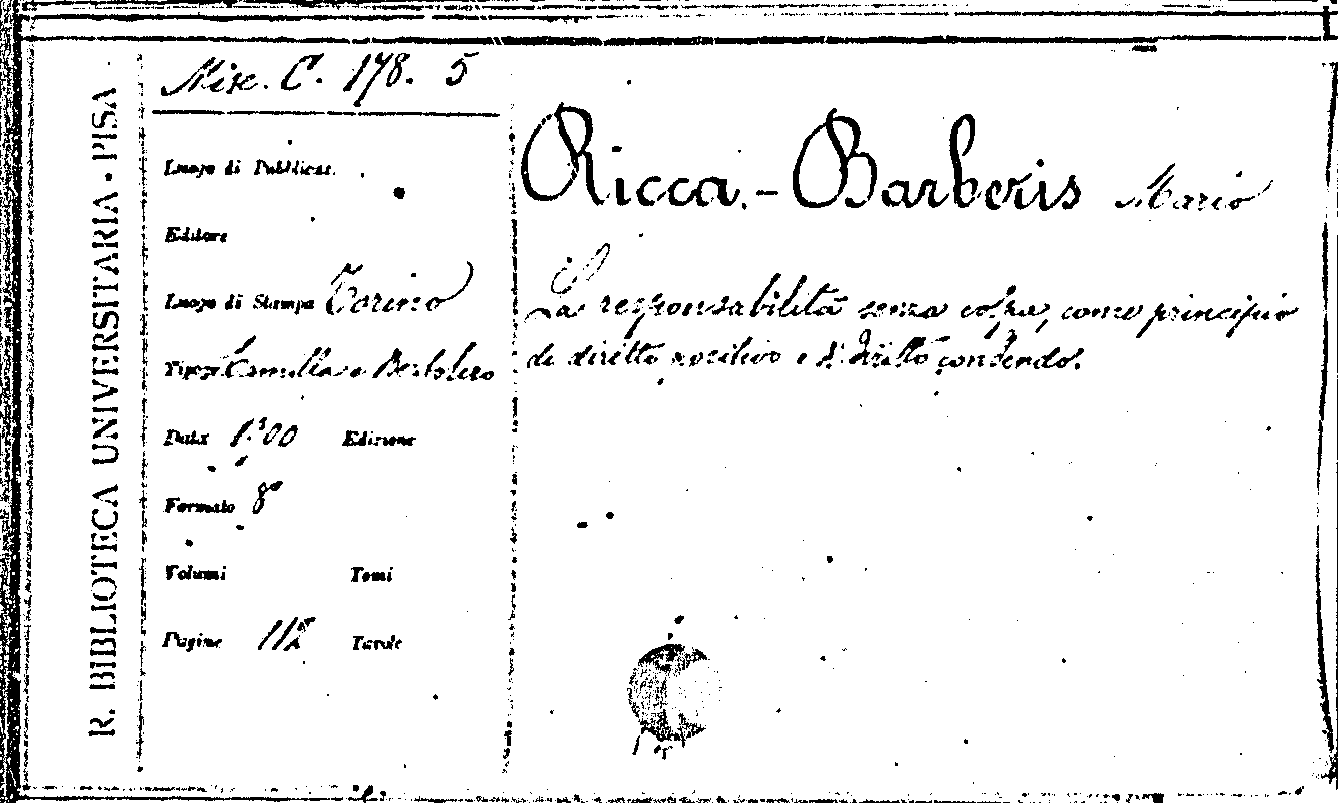 R. BIBLIOTECA UNIVERSITARIA - PISA
Misc. C. 178. 5
Luogo di Pubblicaz.
Editore
Luogo di Stampa Torino
Tipogr. Camilla e Bertolero
Data Edizione
Formato 8°
Volumi Tomi
Pagine 112 Tavole
Ricca-Barberis Mario
La responsabilità senza colpa, come principio
di diritto positivo e di diritto condendo.